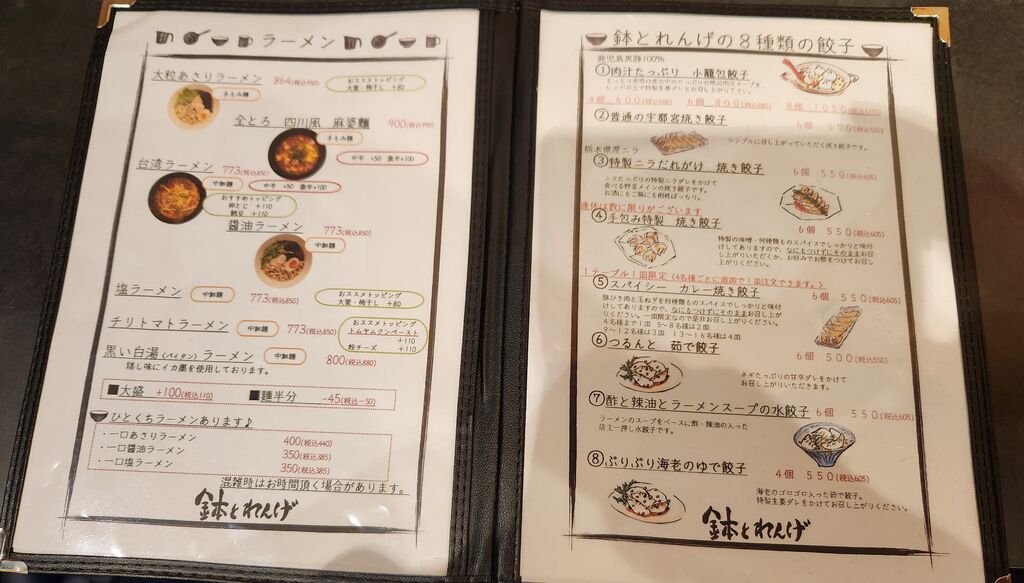 ラーメン
大粒あさりラーメン 864(税込950)
おススメトッピング
大葉・梅干し +80
きもみ麺
全とろ 四川風 麻婆麺 900(税込990)
きもみ麺
中辛 +50 激辛+100
台湾ラーメン 773(税込850)
中細麺
中辛 +50 激辛+100
おすすめトッピング
卵とじ +110
納豆 +110
醬油ラーメン 773(税込850)
中細麺
塩ラーメン 中細麺 773(税込850)
おススメトッピング
大葉・梅干し +80
チリトマトラーメン 中細麺 773(税込850)
おススメトッピング
トムヤムクンペースト
+110
粉チーズ +110
黒い白湯(パイタン)ラーメン 中細麺 800(税込880)
隠し味にイカ墨を使用しております。
■大盛 +100(税込110) ■麺半分 -45(税込-50)
ひとくちラーメンあります♪
・一口あさりラーメン 400(税込440)
・一口醤油ラーメン 350(税込385)
・一口塩ラーメン 350(税込385)
混雑時はお時間頂く場合があります。
鉢とれんげ
鉢とれんげの8種類の餃子
鹿児島黒豚100%
①肉汁たっぷり 小籠包餃子
レンゲの上で特製生姜ダレとお召し上がり下さい。
4個 600(税込660) 6個 800(税込880) 8個 1050(税込1155)
②普通の宇都宮焼き餃子 6個 550(税込605)
シンプルに召し上がっていただく焼き餃子です。
栃木県産ニラ
③特製ニラだれがけ 焼き餃子 6個 550(税込605)
ニラたっぷりの特製ニラダレをかけて
食べる野菜メインの焼き餃子です。
お酒にもご飯にも相性ばっちり。
連休は数に限りがございます
④手包み特製 焼き餃子 6個 550(税込605)
特製の味噌・何種類ものスパイスでしっかりと味付
けしてありますので、なにもつけずにそのままお召
し上がりいただくか、お好みでお酢をつけてお召し
上がりください。
1テーブル1皿限定(4名様ごとに追加で1皿注文できます。)
⑤スパイシー カレー焼き餃子 6個 550(税込605)
豚ひき肉と玉ねぎを何種類ものスパイスでしっかりと味付
けしてありますので、なにもつけずにそのままお召し上が
りください。一皿限定なので是非お召し上がりください。
4名様まで1皿 5〜8名様は2皿
9〜12名様は3皿 13〜16名様は4皿
⑥つるんと 茹で餃子 6個 500(税込550)
ネギたっぷりの甘辛ダレをかけて
お召し上がりいただきます。
⑦酢と辣油とラーメンスープの水餃子 6個 550(税込605)
ラーメンのスープをベースに酢・辣油の入った
店主一押し水餃子です。
⑧ぷりぷり海老のゆで餃子 4個 550(税込605)
海老のゴロゴロ入った茹で餃子。
特製生姜ダレをかけてお召し上がりください。
鉢とれんげ